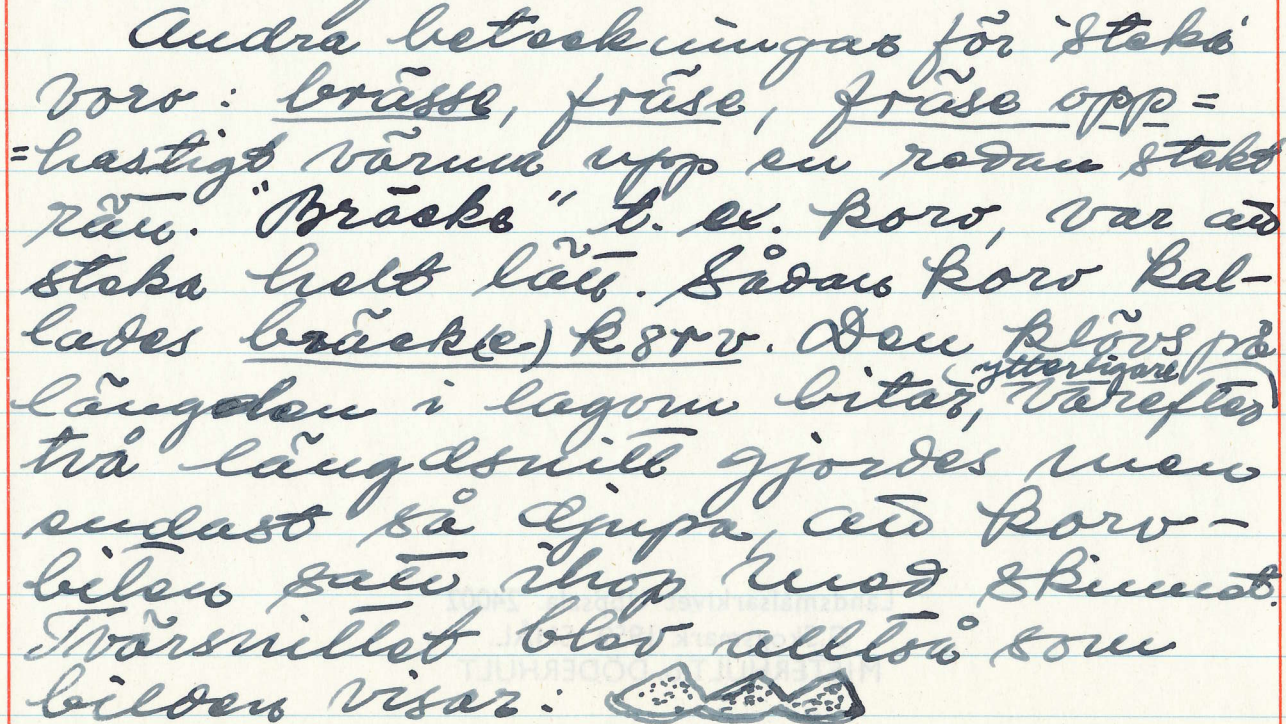 Andra beteckningar för 'steka'
voro: brässe, fräse, fräse opp =
= hastigt värma upp en redan stekt
rätt. "Bräcka" t. ex. korv, var att
steka helt lätt. Sådan korv kal-
lades bräck(e)korv. Den klövs på
längden i lagom bitar, varefter ytterligare
två längdsnitt gjordes men
endast så djupa, att korv-
biten satt ihop med skinnet.
Tvärsnittet blev alltså som
bilden visar: